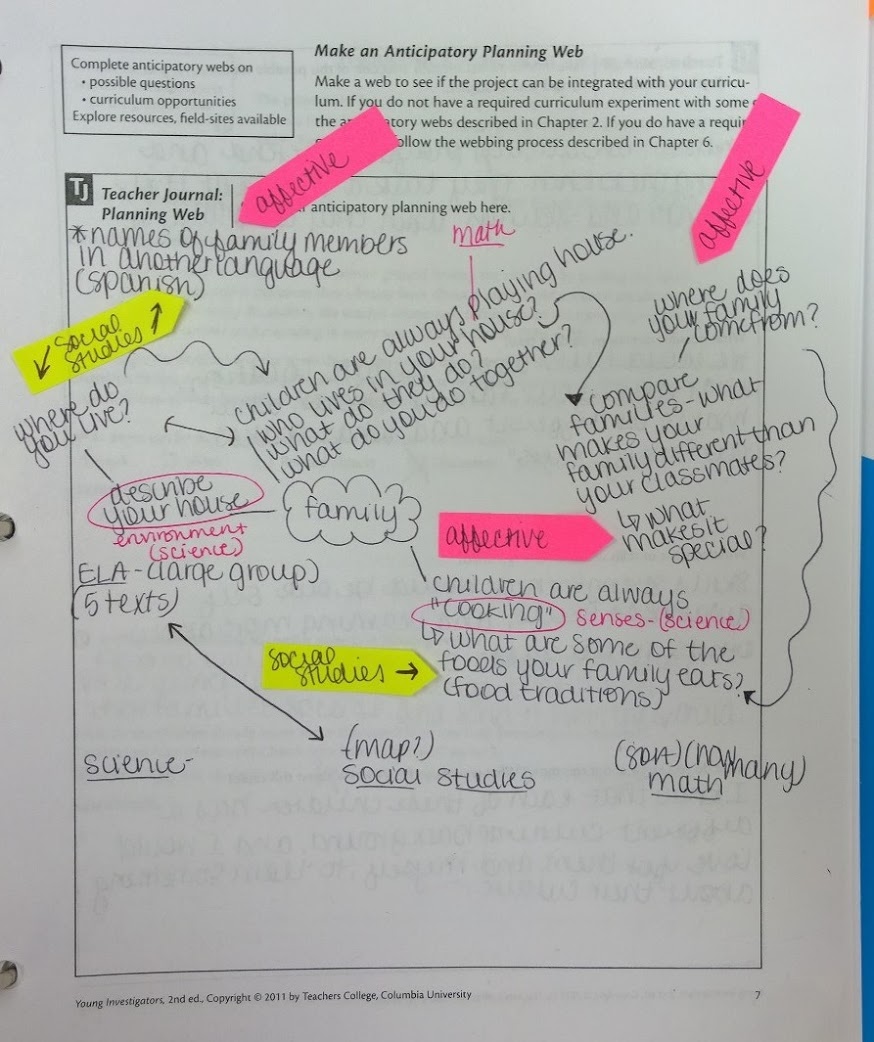 Complete anticipatory webs on
• possible questions
• curriculum opportunities
Explore resources, field-sites available
Make an Anticipatory Planning Web
Make a web to see if the project can be integrated with your curricu-
lum. If you do not have a required curriculum experiment with some
the tory webs described in Chapter 2. If you do have a requir
ollow the webbing process described in Chapter 6.
affective
affective
TJ
Teacher Journal:
Planning Web
anticipatory planning web here.
*names of family members
in another language
(spanish)
math
social
studies
where do
you live?
children are always playing house.
who lives in your house?
what do they do?
what do you do together?
where does
your family
come from?
compare
families-what
makes your
family different than
your classmates?
↳ what
makes it
special?
affective
describe
your house
environment
(science)
family
ELA - (large group)
(5 texts)
children are always
"cooking" senses-(science)
↳ what are some of the
foods your family eats?
(food traditions)
social
studies →
science-
(map?)
social studies
(sort) (how many)
math
Young Investigators, 2nd ed., Copyright © 2011 by Teachers College, Columbia University
7